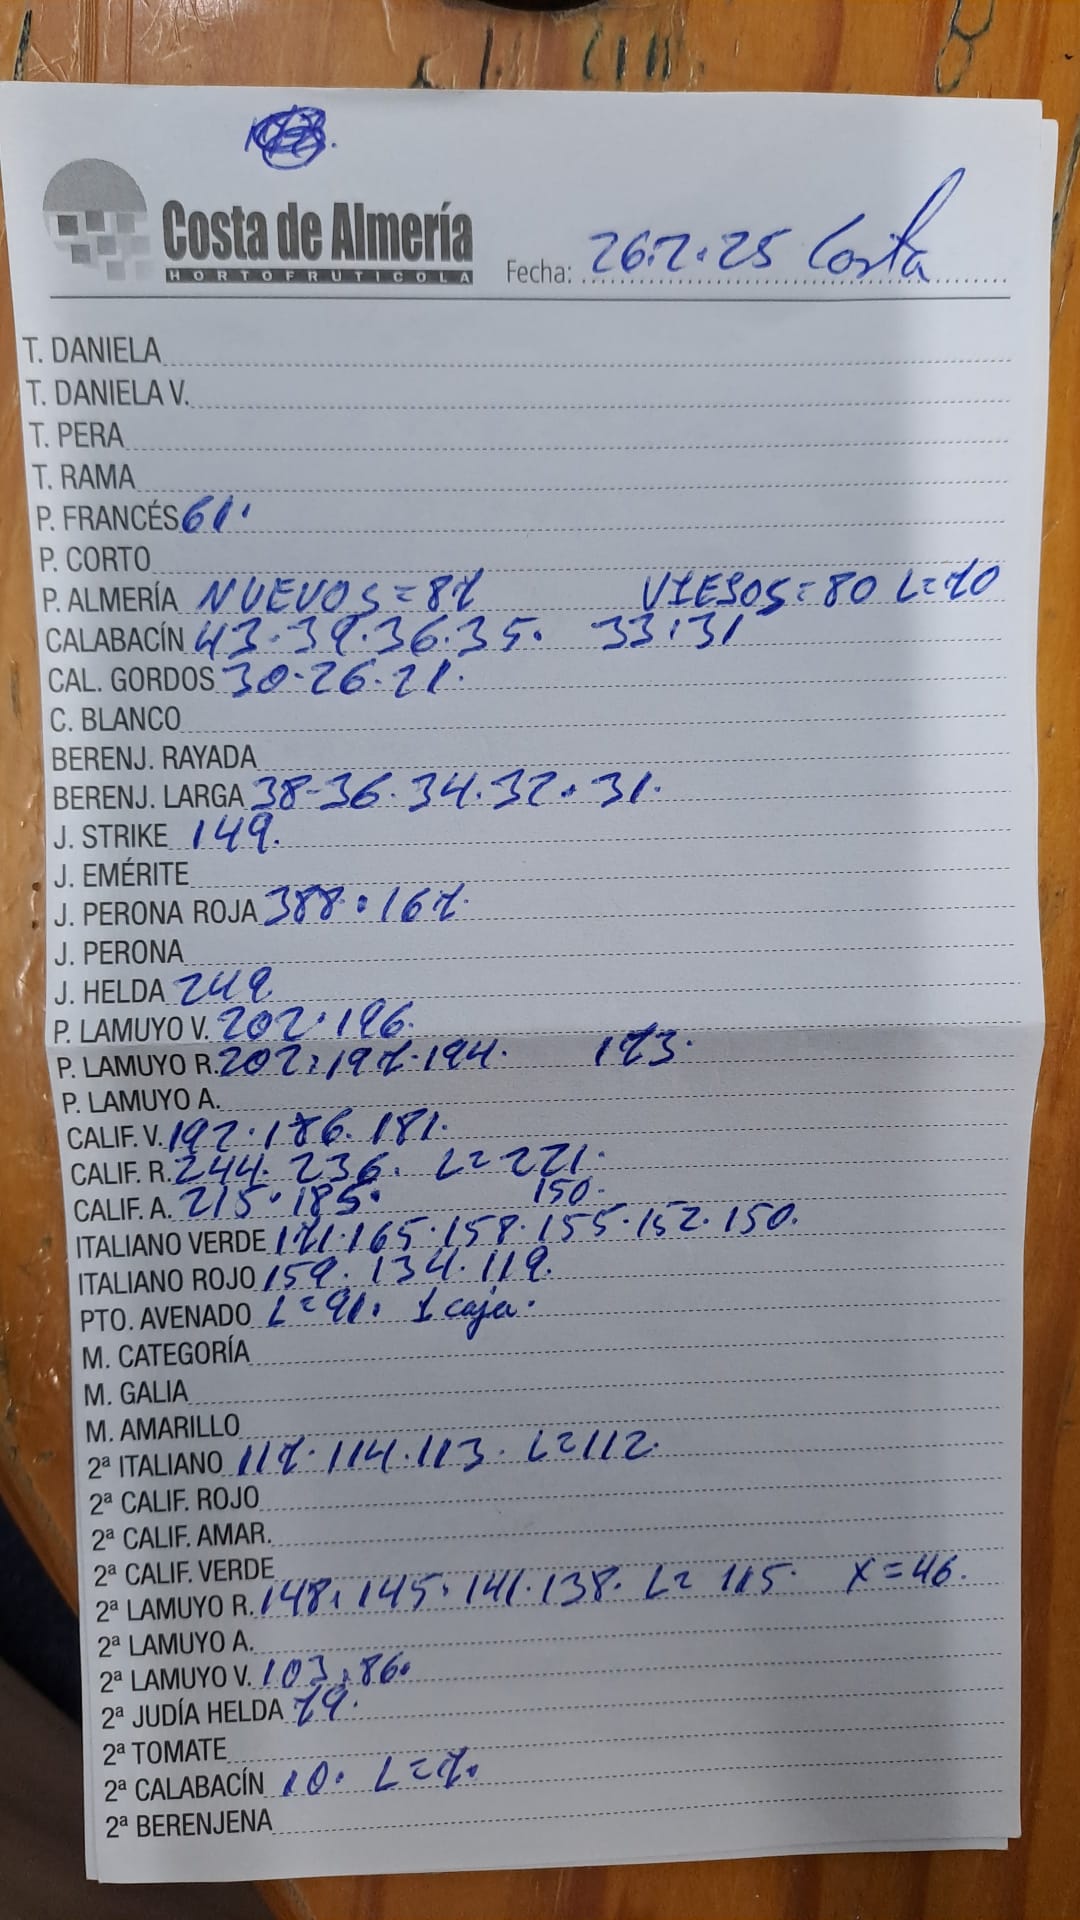 Costa de Almería
HORTOFRUTICOLA
Fecha: 26.2.25 Costa
T. DANIELA
T. DANIELA V.
T. PERA
T. RAMA
P. FRANCÉS 61.
P. CORTO
P. ALMERÍA NUEVOS = 87 VIESOS = 80 L = 70
CALABACÍN 43.39.36.35. 33.31
CAL. GORDOS 30.26.21.
C. BLANCO
BERENJ. RAYADA
BERENJ. LARGA 38-36.34.32.31.
J. STRIKE 149.
J. EMÉRITE
J. PERONA ROJA 388.167.
J. PERONA
J. HELDA 249
P. LAMUYO V. 202.196.
P. LAMUYO R. 202.197.194. 173.
P. LAMUYO A.
CALIF. V. 192.186.181.
CALIF. R. 244.236. L = 221.
CALIF. A. 215.185. 150.
ITALIANO VERDE 171.165.158.155.152.150.
ITALIANO ROJO 159.134.119.
PTO. AVENADO L = 91. 1 caja.
M. CATEGORÍA
M. GALIA
M. AMARILLO
2ª ITALIANO 117.114.113. L = 112.
2ª CALIF. ROJO
2ª CALIF. AMAR.
2ª CALIF. VERDE
2ª LAMUYO R. 148.145.141.138. L = 115. X = 46.
2ª LAMUYO A.
2ª LAMUYO V. 103.86.
2ª JUDÍA HELDA 79.
2ª TOMATE
2ª CALABACÍN 10. L = 7.
2ª BERENJENA